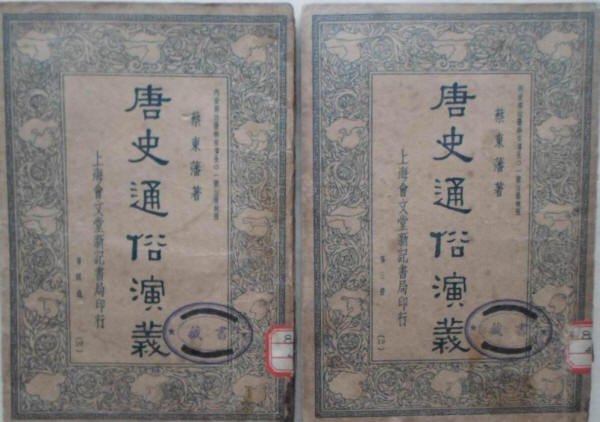 蔡東藩著
唐史通俗演義
上海會文堂新記書局印行
藏書
蔡東藩著
唐史通俗演義
上海會文堂新記書局印行
第三册
藏書